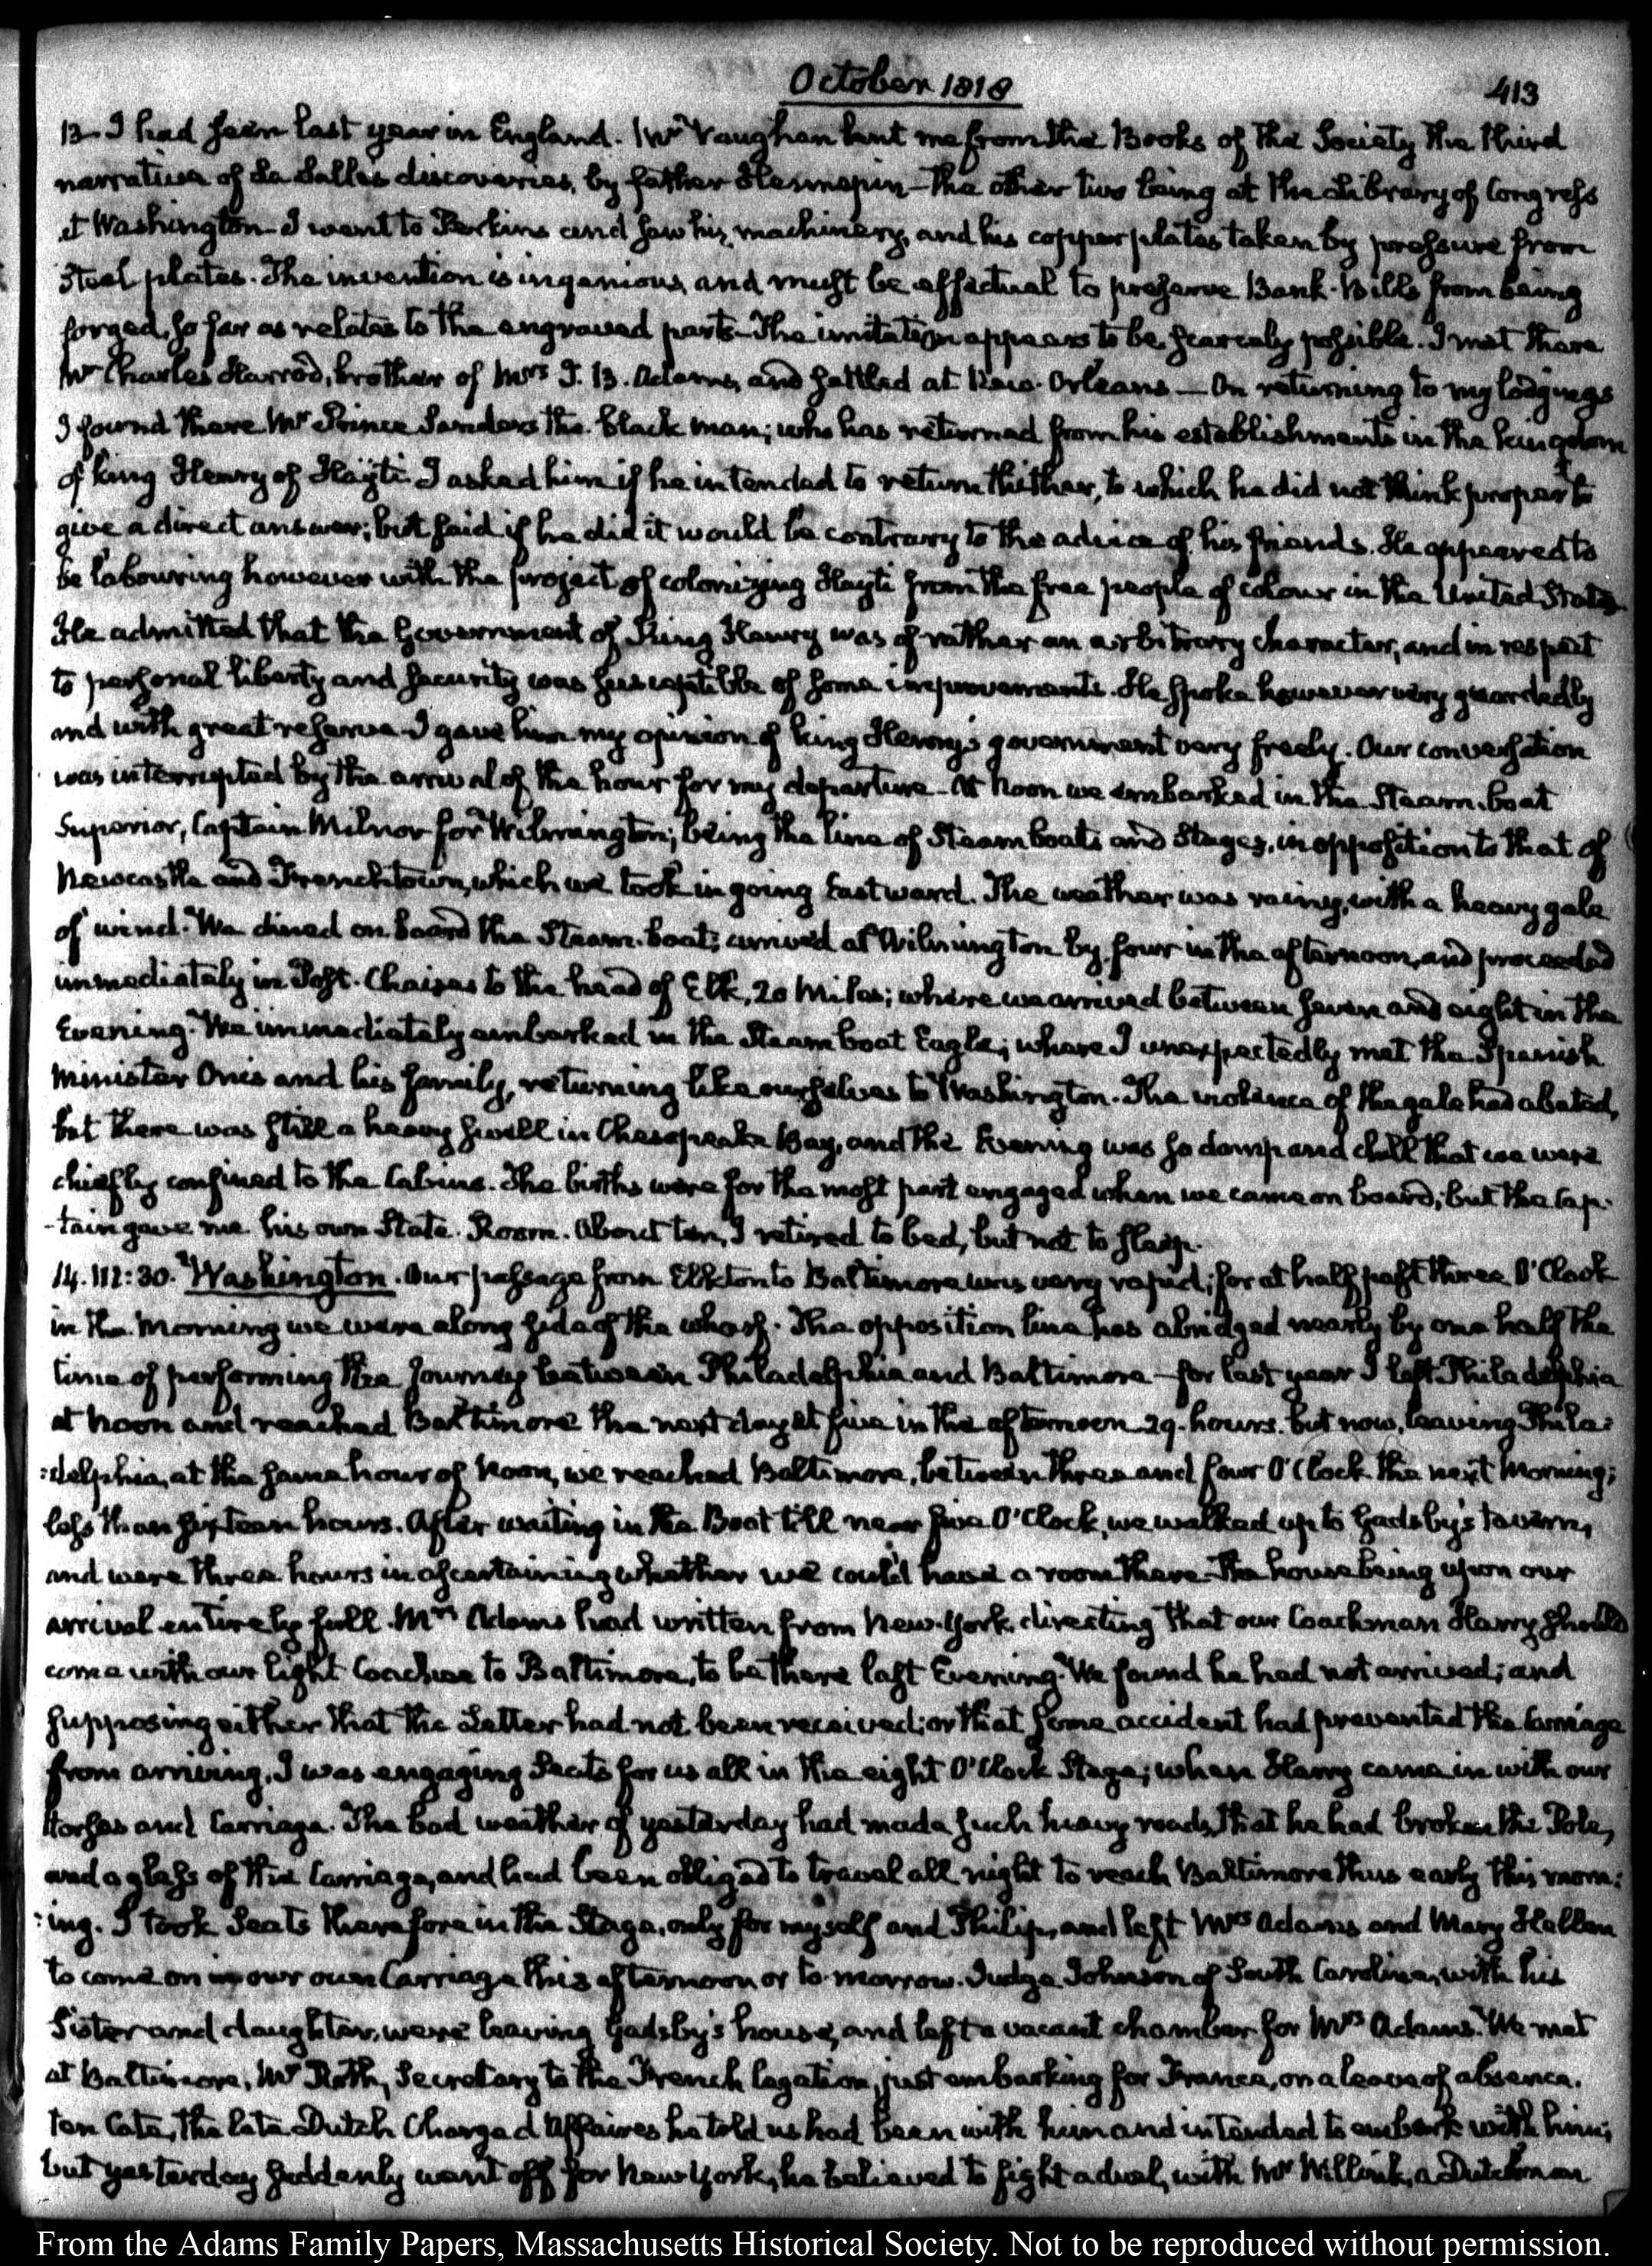 October 1818
413
13. I had seen last year in England. Mr Vaughan lent me from the Books of the Society the third
narrative of La Salle's discoveries, by father Hennepin — the other two being at the Library of Congress
at Washington. I went to Perkins and saw his machinery, and his copper plates taken by pressure from
Steel plates. The invention is ingenious, and must be effectual to preserve Bank-Bills from being
forged, so far as relates to the engraved part. The imitation appears to be scarcely possible. I met there
Mr Charles Harrod, brother of Mrs T. B. Adams, and settled at New-Orleans — On returning to my lodgings
I found there Mr Prince Sanders the black man; who has returned from his establishments in the kingdom
of king Henry of Hayti. I asked him if he intended to return thither, to which he did not think proper to
give a direct answer; but said if he did it would be contrary to the advice of his friends. He appeared to
be labouring however with the project of colonizing Hayti from the free people of colour in the United States.
He admitted that the Government of King Henry was of rather an arbitrary character, and in respect
to personal liberty and security was susceptible of some improvements. He spoke however very guardedly
and with great reserve. I gave him my opinion of king Henry's government very freely. Our conversation
was interrupted by the arrival of the hour for my departure. At Noon we embarked in the Steam-boat
Superior, Captain Milnor for Wilmington; being the line of Steam boats and Stages, in opposition to that of
Newcastle and Frenchtown, which we took in going Eastward. The weather was rainy, with a heavy gale
of wind. We dined on board the Steam-boat; arrived at Wilmington by four in the afternoon, and proceeded
immediately in Post-Chaises to the head of Elk, 20 Miles; where we arrived between seven and eight in the
Evening. We immediately embarked in the Steam boat Eagle; where I unexpectedly met the Spanish
Minister Onis and his family, returning like ourselves to Washington. The violence of the gale had abated,
but there was still a heavy swell in Chesapeake Bay, and the Evening was so damp and chill that we were
chiefly confined to the Cabins. The births were for the most part engaged when we came on board; but the Cap-
-tain gave me his own State-Room. About ten, I retired to bed, but not to sleep.
14. III:30. Washington. Our passage from Elkton to Baltimore was very rapid; for at half past three O'Clock
in the Morning we were along side of the wharf. The opposition line has abridged nearly by one half the
time of performing the Journey between Philadelphia and Baltimore — for last year I left Philadelphia
at Noon and reached Baltimore the next day at five in the afternoon 29. hours. but now, leaving Phila:
:delphia, at the same hour of Noon, we reached Baltimore, between three and four O'Clock the next Morning;
less than sixteen hours. After waiting in the Boat till near five O'Clock, we walked up to Gadsby's tavern,
and were three hours in ascertaining whether we could have a room there. The house being upon our
arrival entirely full. Mrs Adams had written from New-York, directing that our Coachman Harry should
come with our light Coachee to Baltimore, to be there last Evening. We found he had not arrived; and
supposing either that the Letter had not been received; or that some accident had prevented the Carriage
from arriving, I was engaging Seats for us all in the eight O'Clock Stage; when Harry came in with our
Horses and Carriage. The bad weather of yesterday had made such heavy roads, that he had broken the Pole,
and a glass of the Carriage, and had been obliged to travel all night to reach Baltimore thus early this morn:
:ing. I took Seats therefore in the Stage, only for myself and Philip, and left Mrs Adams and Mary Hellen
to come on in our own Carriage this afternoon or to-morrow. Judge Johnson of South Carolina, with his
Sister and daughter, were leaving Gadsby's house, and left a vacant chamber for Mrs Adams. We met
at Baltimore, Mr Roth, Secretary to the French legation, just embarking for France, on a leave of absence.
Ten Cate, the late Dutch Charge d'Affaires he told us had been with him and intended to embark with him;
but yesterday suddenly went off for New York, he believed to fight a duel, with Mr Willink, a Dutchman
From the Adams Family Papers, Massachusetts Historical Society. Not to be reproduced without permission.